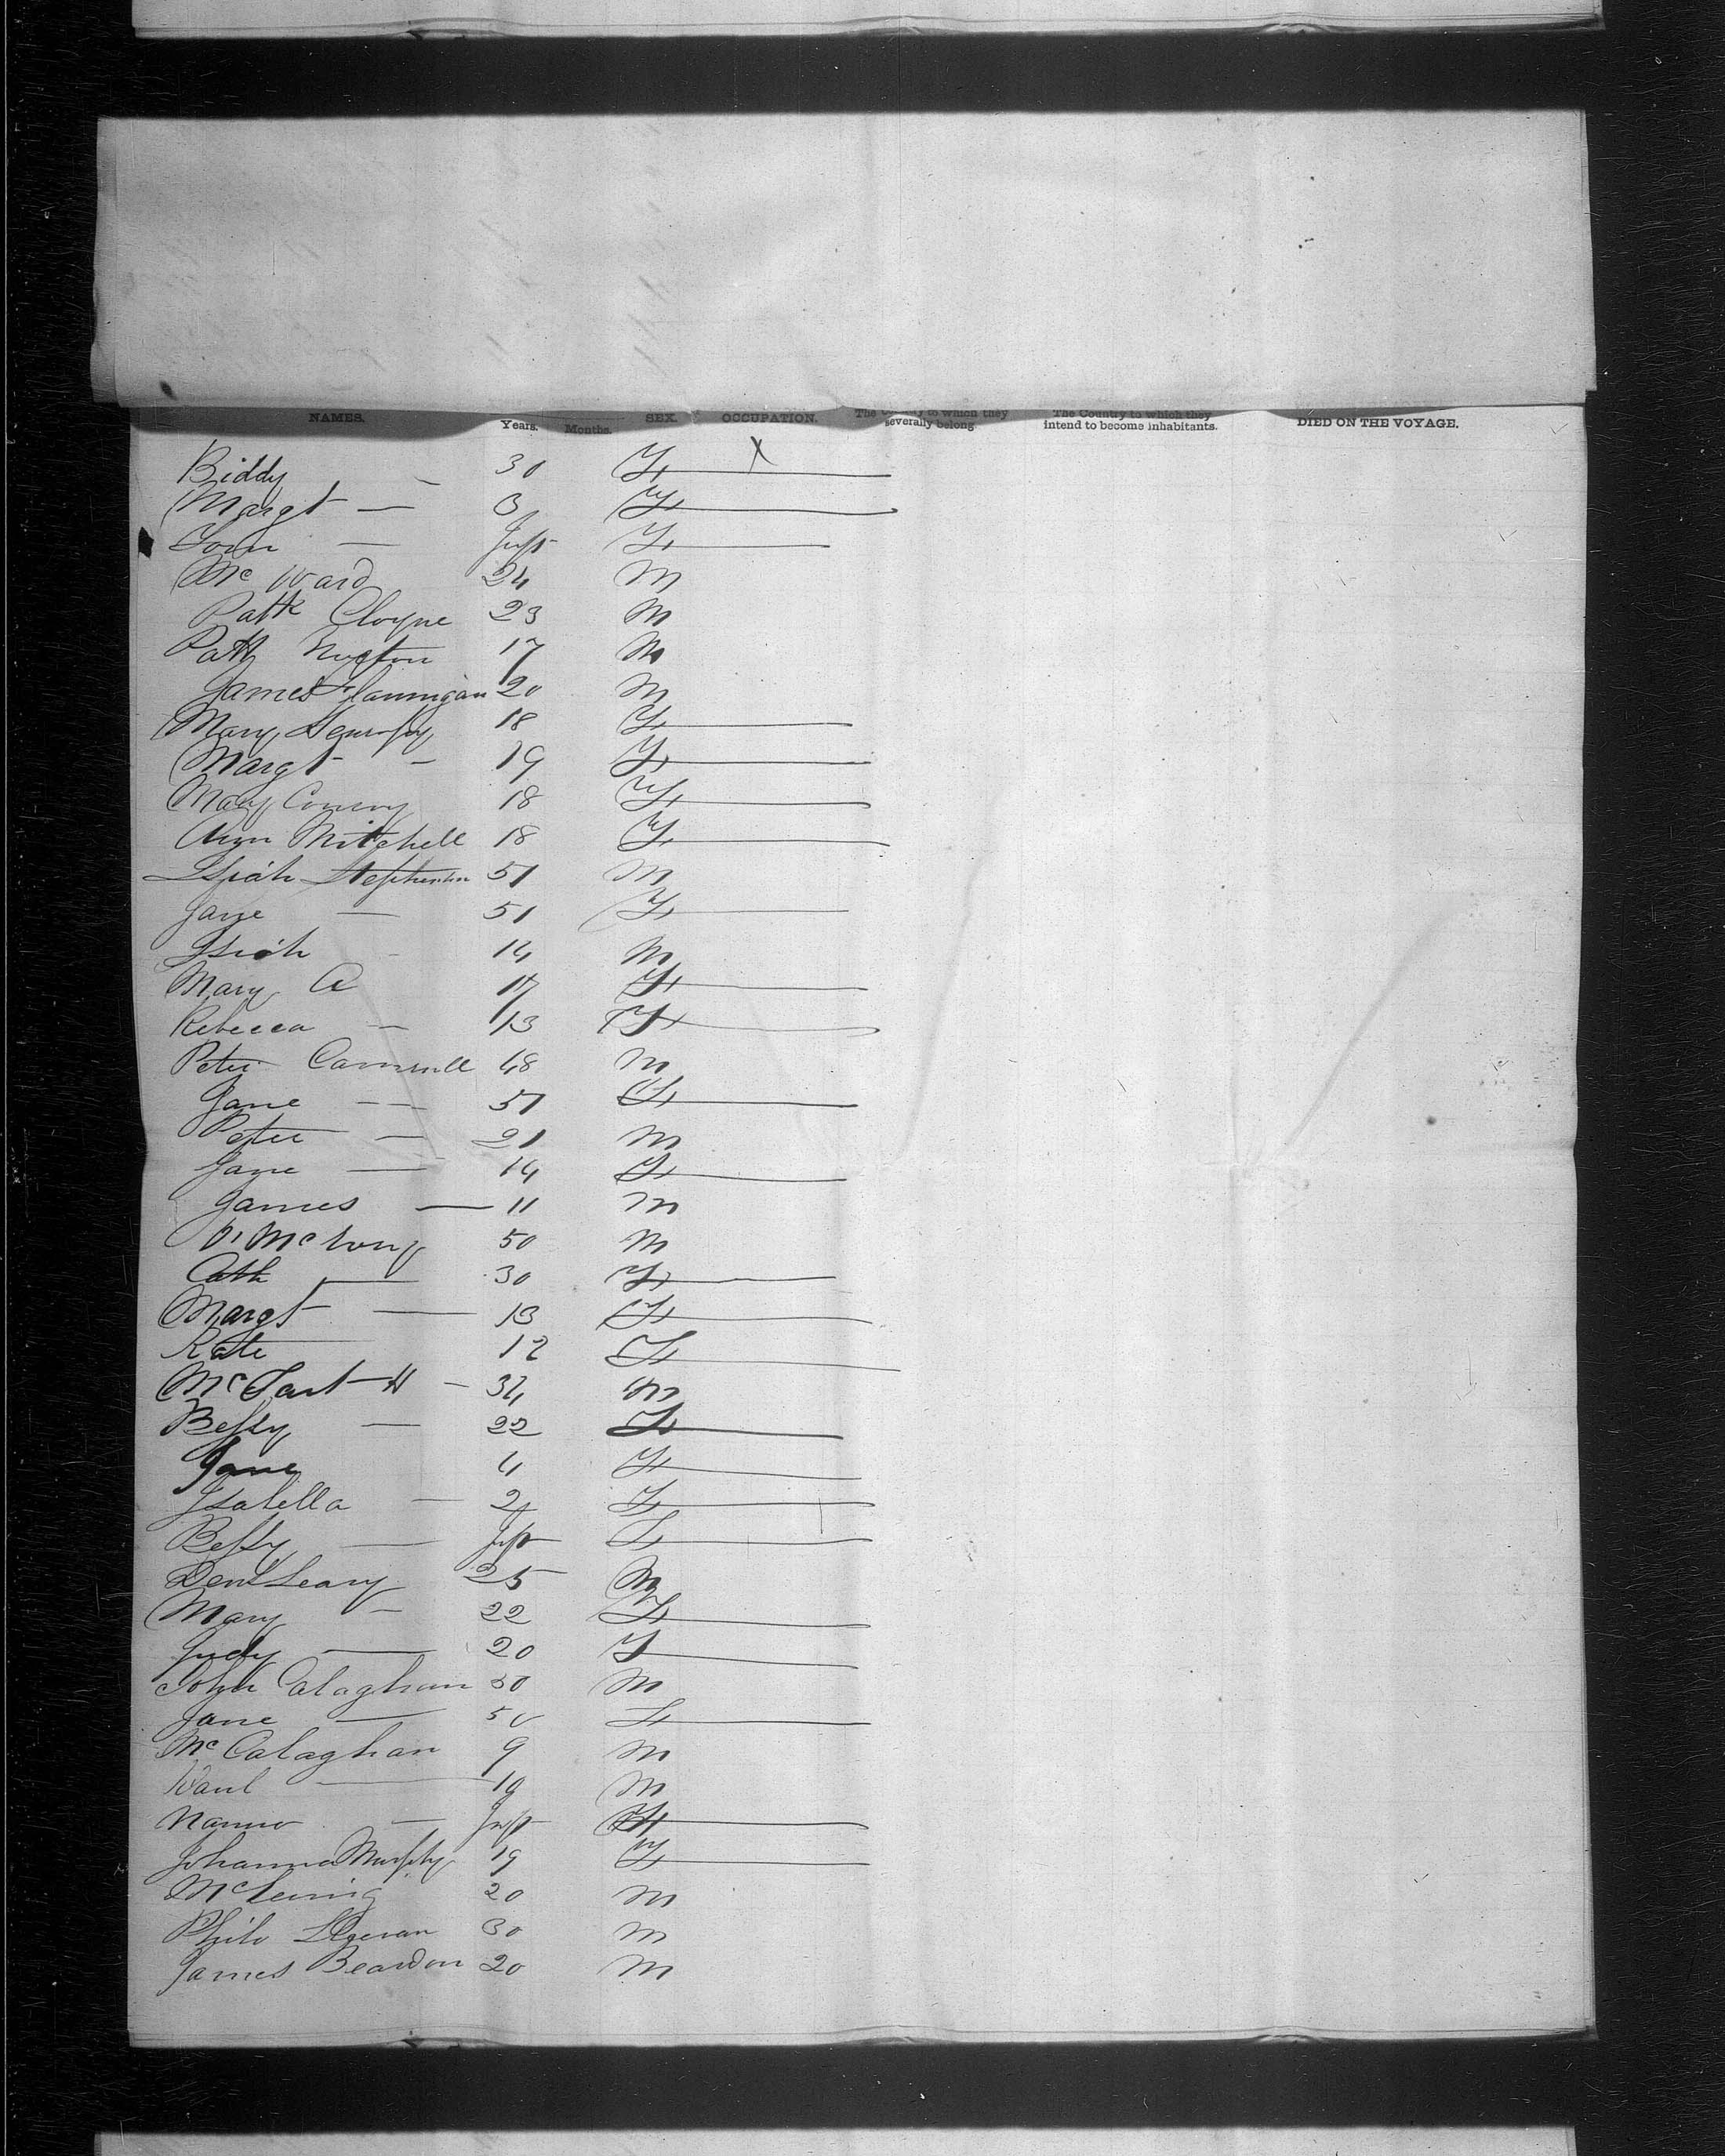 NAMES. Years. Months. SEX. OCCUPATION. The Country to which they severally belong The Country to which they intend to become inhabitants. DIED ON THE VOYAGE.
Biddy - 30 F X
Margt — 3 F
— Inft F
Mc Ward 24 M
Patk Cloyne 23 M
Patk 17 M
James Flannigan 20 M
Mary 18 F
Margt - 19 F
Mary Conroy 18 F
Ann Mitchell 18 F
Isiah Stephenson 51 M
Jane — 51 F
Isiah - 14 M
Mary A 17 F
Rebecca — 13 F
Peter 48 M
Jane — 51 F
Peter — 21 M
Jane — 14 F
James — 11 M
50 M
Cath — 30 F
Margt — 13 F
Kate 12 F
34 M
Betty — 22 F
Jane 4 F
Isabella — 2 F
Betty — Inft F
Denl Leary 25 M
Mary — 22 F
Judy — 20 F
John Calaghan 50 M
Jane — 50 F
Mc Calaghan 9 M
— 19 M
— Inft F
Johanna Murphy 19 F
20 M
30 M
James Beardon 20 M